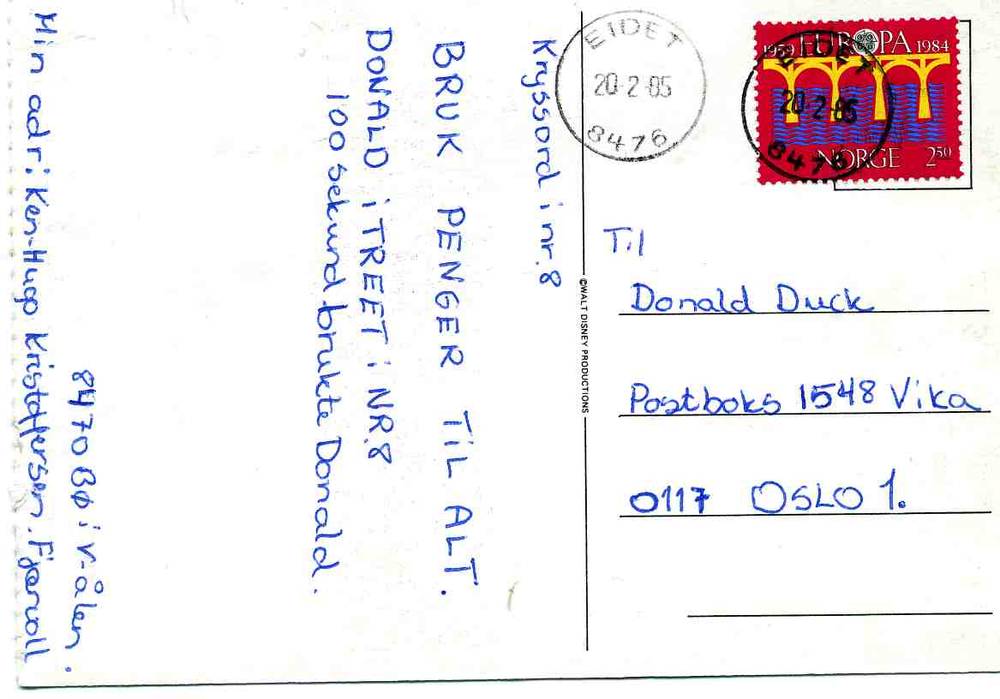 Kryssord i nr. 8
BRUK PENGER TiL ALT.
DONALD i TREET i NR. 8
100 sekund brukte Donald.
Min adr: Ken-Hugo Kristoffersen. Fjærvoll
8470 Bø i V-ålen.
©WALT DISNEY PRODUCTIONS
EIDET
20-2-85
8476
1959 EUROPA 1984
NORGE 250
EIDET
20-2-85
8476
Til
Donald Duck
Postboks 1548 Vika
0117 OSLO 1.